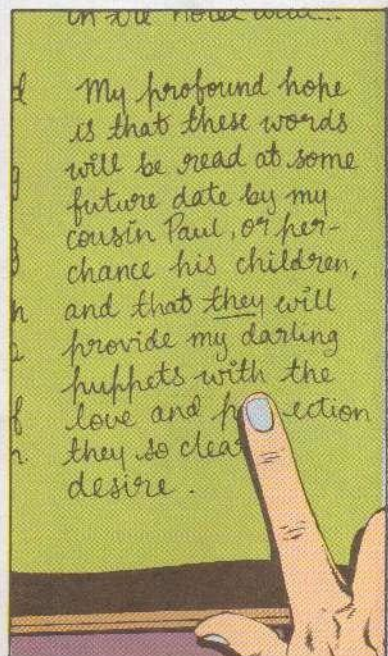 in the hotel wall...
My profound hope
is that these words
will be read at some
future date by my
cousin Paul, or per-
chance his children,
and that they will
provide my darling
puppets with the
love and p ection
they so clea
desire.